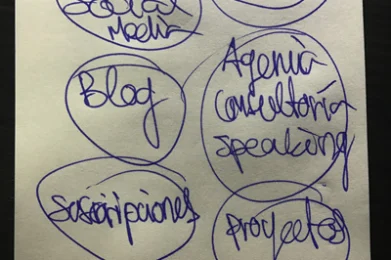 Social
Media
Blog
Agencia
Consultoría
speaking
suscripciones
Proyectos